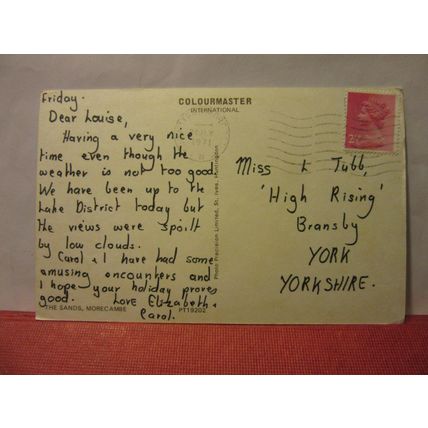 Friday.
Dear Louise,
Having a very nice
time even though the
weather is not too good.
We have been up to the
Lake District today but
the views were spoilt
by low clouds.
Carol & I have had some
amusing encounters and
I hope your holiday proves
good. Love Elizabeth &
Carol.
THE SANDS, MORECAMBE PT19202
COLOURMASTER
INTERNATIONAL
Photo Precision Limited, St. Ives, Huntingdon
1971
Miss L Tubb,
'High Rising'
Bransby
YORK
YORKSHIRE.